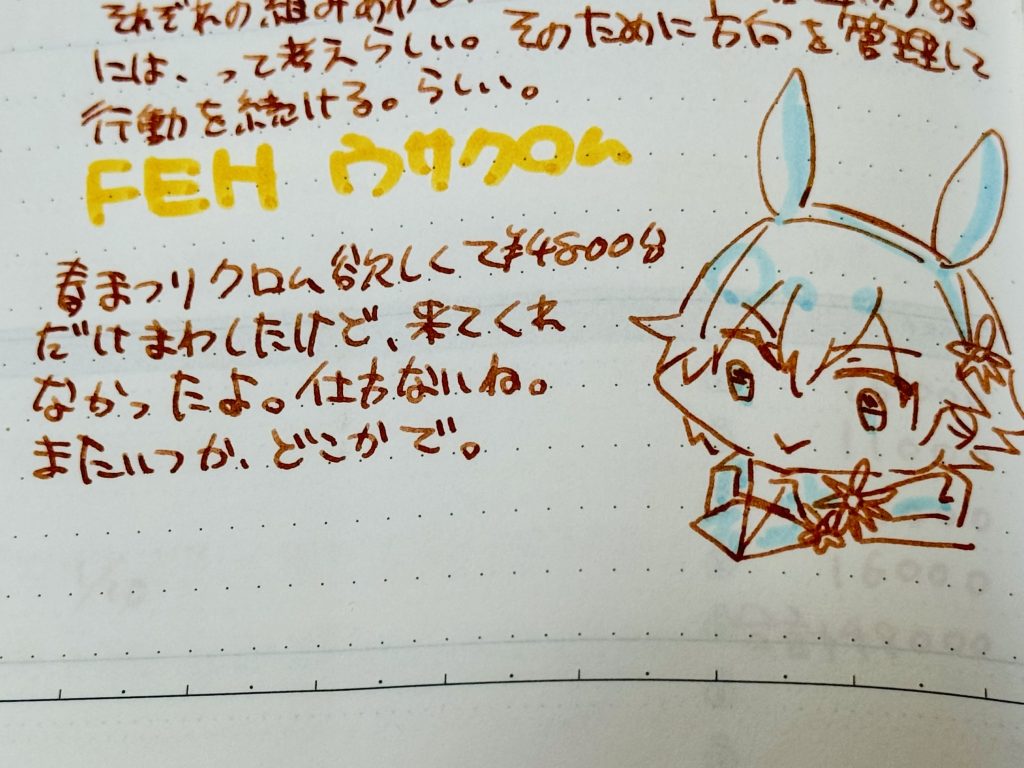 それぞれの組みあわし
には、って考えらしい。そのために方向を管理して
行動を続ける。らしい。
FEH ウサクロム
春まつりクロム欲しくて¥4800分
だけまわしたけど、来てくれ
なかったよ。仕方ないね。
またいつか、どこかで。